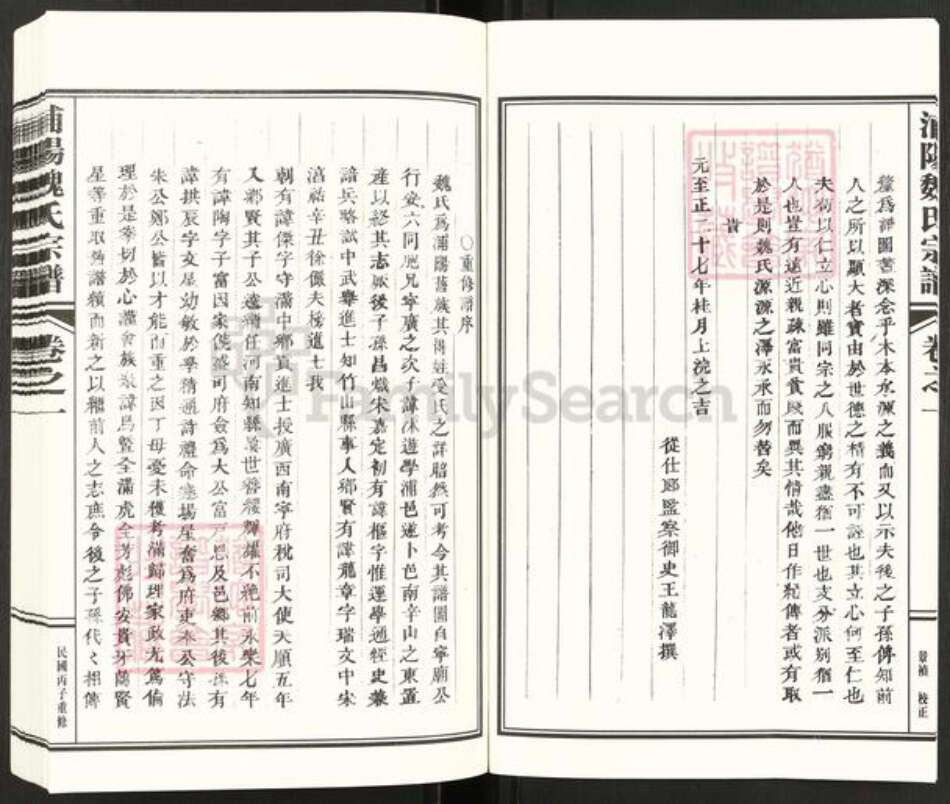 浦陽魏氏宗譜
卷之一
景楨 校正
釐為評圖舊深念乎木本水源之義而又以示夫後之子孫俾知前
人之所以顯大者實由於世德之積有不可誣也其立心何至仁也
夫苟以仁立心則雖同宗之人服窮親盡猶一世也支分派別猶一
人也豈有遠近親疎富貴貧賤而異其情哉他日作紀傳者或有取
於是則魏氏源源之澤永承而勿替矣
旹
元至正二十七年桂月上浣之吉
從仕郎監察御史王龍澤撰
○重修譜序
魏氏為浦陽舊族其得姓受氏之詳昭然可考今其譜圖自寧廟公
行安六同兄寧廣之次子諱沐遊學浦邑遂卜邑南辛山之東置
產以終其志厥後子孫昌熾宋嘉定初有諱樞字惟運學通經史兼
諳兵略試中武舉進士知竹山縣事入鄉賢有諱龍章字瑞文中宋
淳祐辛丑徐儼夫榜進士我
朝有諱傑字守滿中鄉貢進士授廣西南寧府稅司大使天順五年
入鄉賢其子公遠 任河南知縣 世簪纓輝耀不絕前永樂七年
有諱陶字子富因家饒盛司府僉為大公富戶 及邑鄉其後孫有
諱拱辰字文星幼敏於學精通詩禮命 場屋奮為府吏奉公守法
朱公鄭公皆以才能而重之因丁母憂未獲考滿歸理家政尤篤倫
理於是孝切於心謹會族 諱鳥暨全滿虎全芳彪佛安貴牙蘭賢
星等重取舊譜續而新之以繼前人之志庶令後之子孫代々相傳
浦陽魏氏宗譜
卷之一
民國丙子重修
FamilySearch